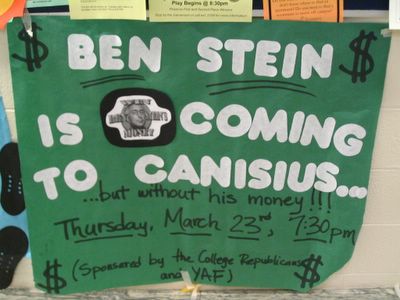 Play Begins @ 8:30pm
$ BEN STEIN $
IS COMING
WIN BEN STEIN'S MONEY
TO CANISIUS...
...but without his money!!!
Thursday, March 23rd, 7:30pm
$ (Sponsored by the College Republicans $
and YAF)